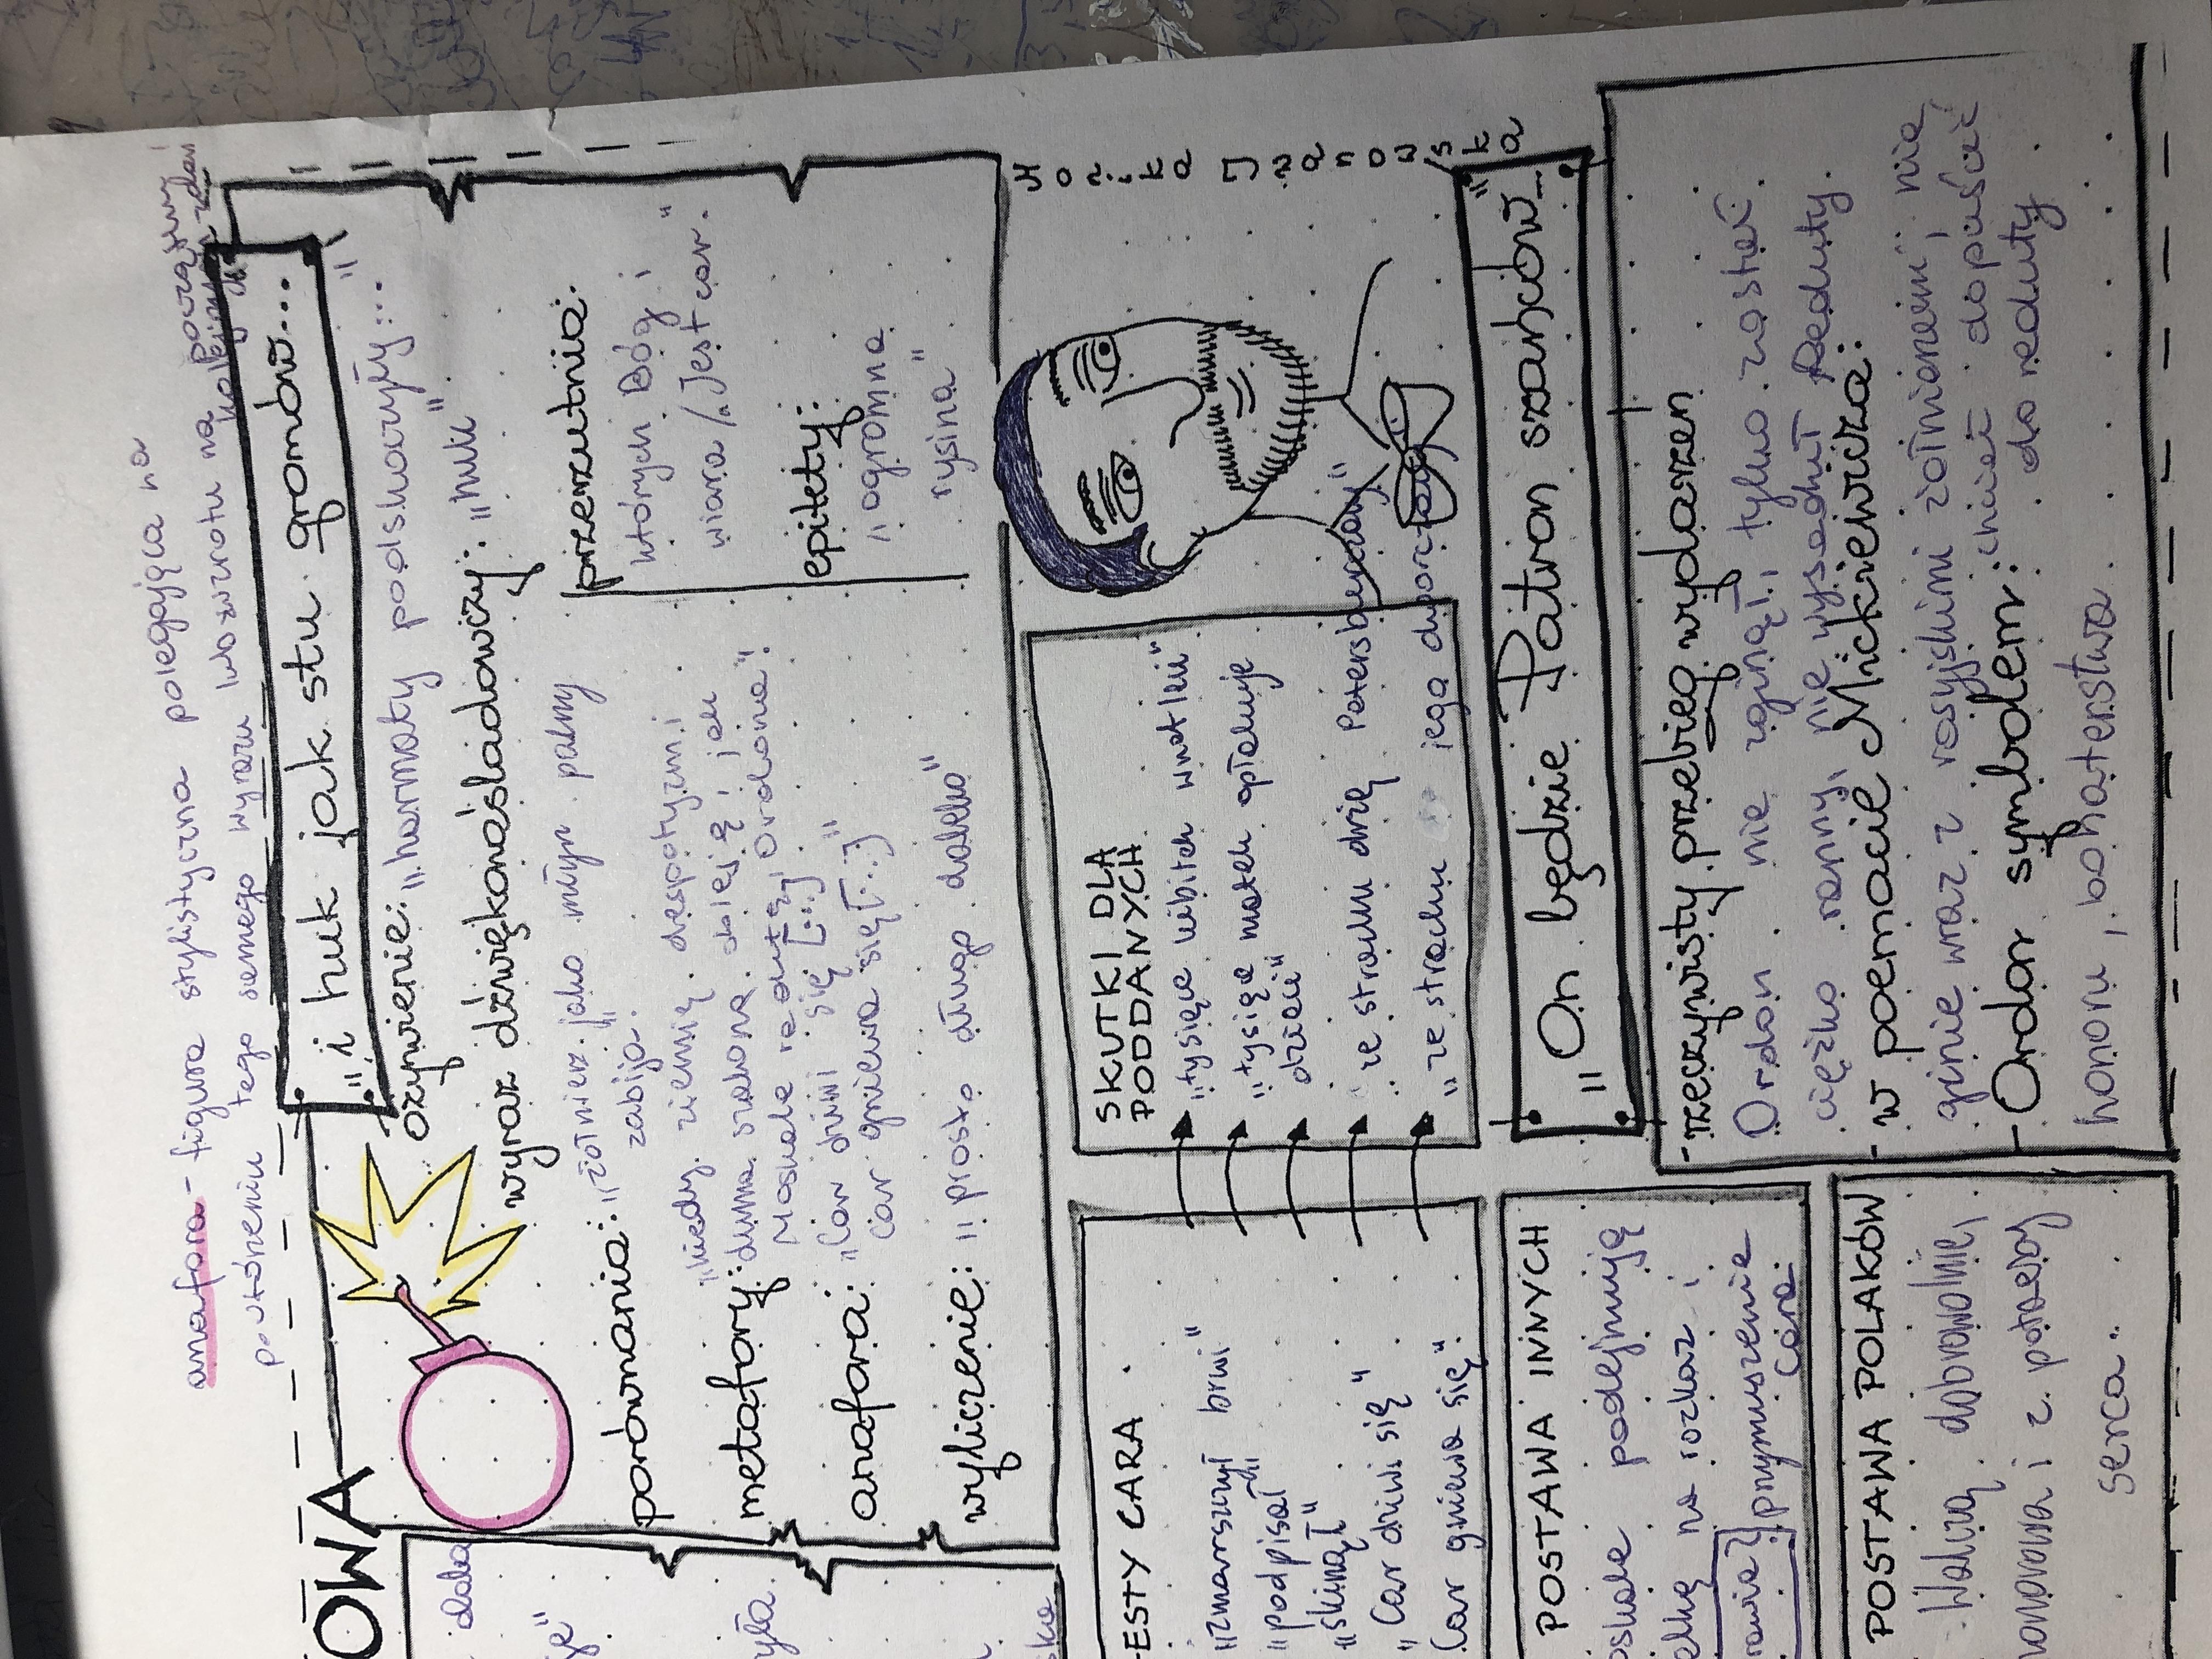 anafora - figura stylistyczna polegająca na
powtórzeniu tego samego wyrazu lub zwrotu na początku
kolejnych zdań
OWA
"i huk jak stu gromów..."
ożywienie: "harmaty podskoczyły..."
wyraz dźwiękonaśladowczy: "huk"
porównania: "żołnierz jako młyn palny
zabija"
metafory: "kiedy ziemię despotyzm i
duma szalona obleją, jak
Moskale redutę Ordona"
anafora: "Car dziwi się [...]"
car gniewa się [...]
wyliczenie: "prosto długo daleko"
przerzutnia:
których Bóg i
wiara / Jest car."
epitety:
"ogromna
rysina"
Hozi.ka Janowska
ESTY CARA
"zmarszczył brwi"
"podpisał"
"skinął"
"Car dziwi się"
Car gniewa się"
SKUTKI DLA
PODDANYCH
"tysiące kibitek wnet leci"
"tysiące matek opłakuje
dzieci"
ze strachu drżą Petersburczany"
"ze strachu jego dworctany
"On będzie Patron szańców"
- rzeczywisty przebieg wydarzeń
Ordon nie zginął, tylko został
ciężko ranny, nie wysadził Reduty.
- w poemacie Mickiewicza:
ginie wraz z rosyjskimi żołnierzami, nie
chcieć dopuścić
do reduty.
- Ordon symbolem:
honoru, bohaterstwa
POSTAWA INNYCH
oskale podejmują
elkę na rozkaz i
przymuszenie
cara.
POSTAWA POLAKÓW
Walczą dobrowolnie,
honorowa i z potrzeby
serca.